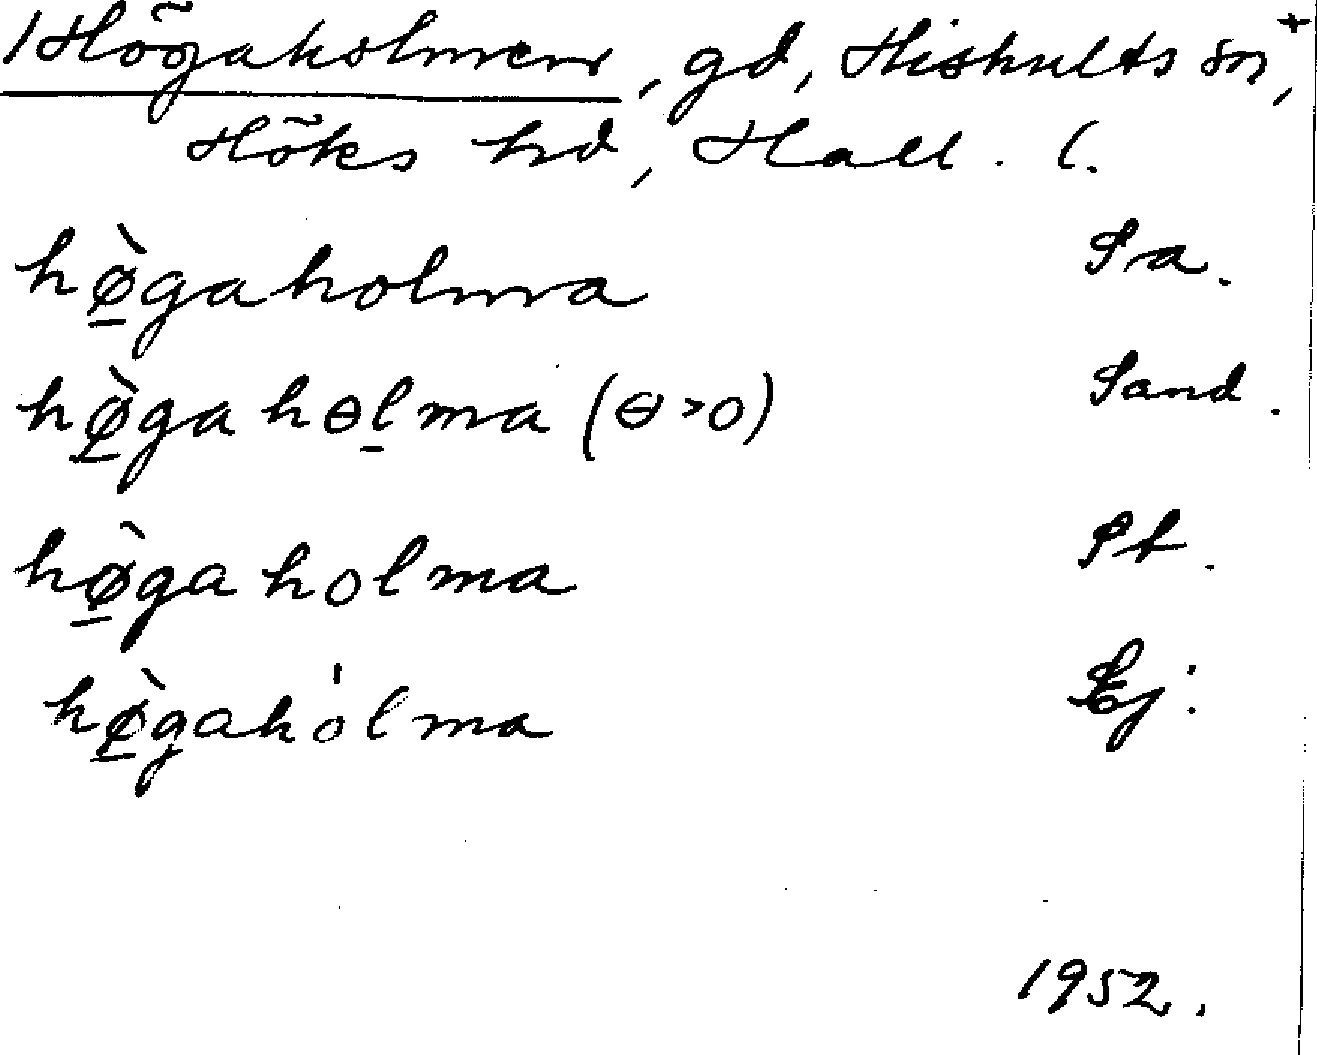 Högaholmen, gd, Hishults sn,+
Höks hd, Hall. l.
hø̠̀gaholma Sa.
hø̠̀gahɵl̠ma (ɵ>o) Sand.
hø̠̀gaholma Pt.
hø̠̀gaho̍lma Ej.
1952.